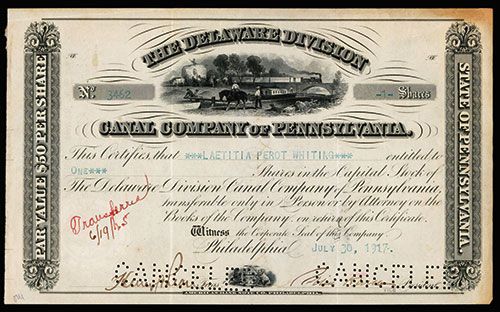 THE DELAWARE DIVISION
No 3462
-1- Shares
CANAL COMPANY OF PENNSYLVANIA.
PAR VALUE $50 PER SHARE
STATE OF PENNSYLVANIA.
This Certifies, that ***LAETITIA PEROT WHITING*** entitled to
ONE*** Shares in the Capital Stock of
The Delaware Division Canal Company of Pennsylvania,
transferable only in Person or by Attorney on the
Books of the Company, on return of this Certificate.
Transferred
6/19/25
Witness the Corporate Seal of this Company.
Philadelphia JULY 30, 1917.
CANCELLED CANCELLED